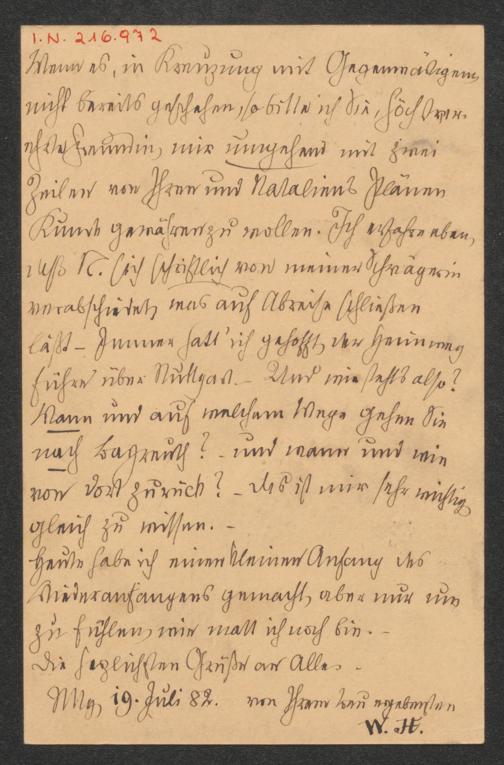 I.N. 216.972
Wenn es, in Kreuzung mit Gegenwärtigem,
nicht bereits geschehen, so bitte ich Sie, höchstver-
ehrte Freundin, mir umgehend mit zwei
Zeilen von Ihren und Nataliens Plänen
Kunde gewähren zu wollen. Ich erfahre eben,
daß N. sich schriftlich von meiner Schwägerin
verabschiedet, was auf Abreise schließen
läßt – Immer hatt' ich gehofft, der Heimweg
führe über Stuttgart. – Und wie steht's also?
Wann und auf welchem Wege gehen Sie
nach Bayreuth? – und wann und wie
von dort zurück? – Das ist mir sehr wichtig
gleich zu wissen. –
Heute habe ich einen kleinen Anfang des
Wiederanfangens gemacht, aber nur um
zu fühlen, wie matt ich noch bin. –
Die herzlichsten Grüße an Alle. –
19. Juli 82. von Ihrem treu ergebensten
W. H.